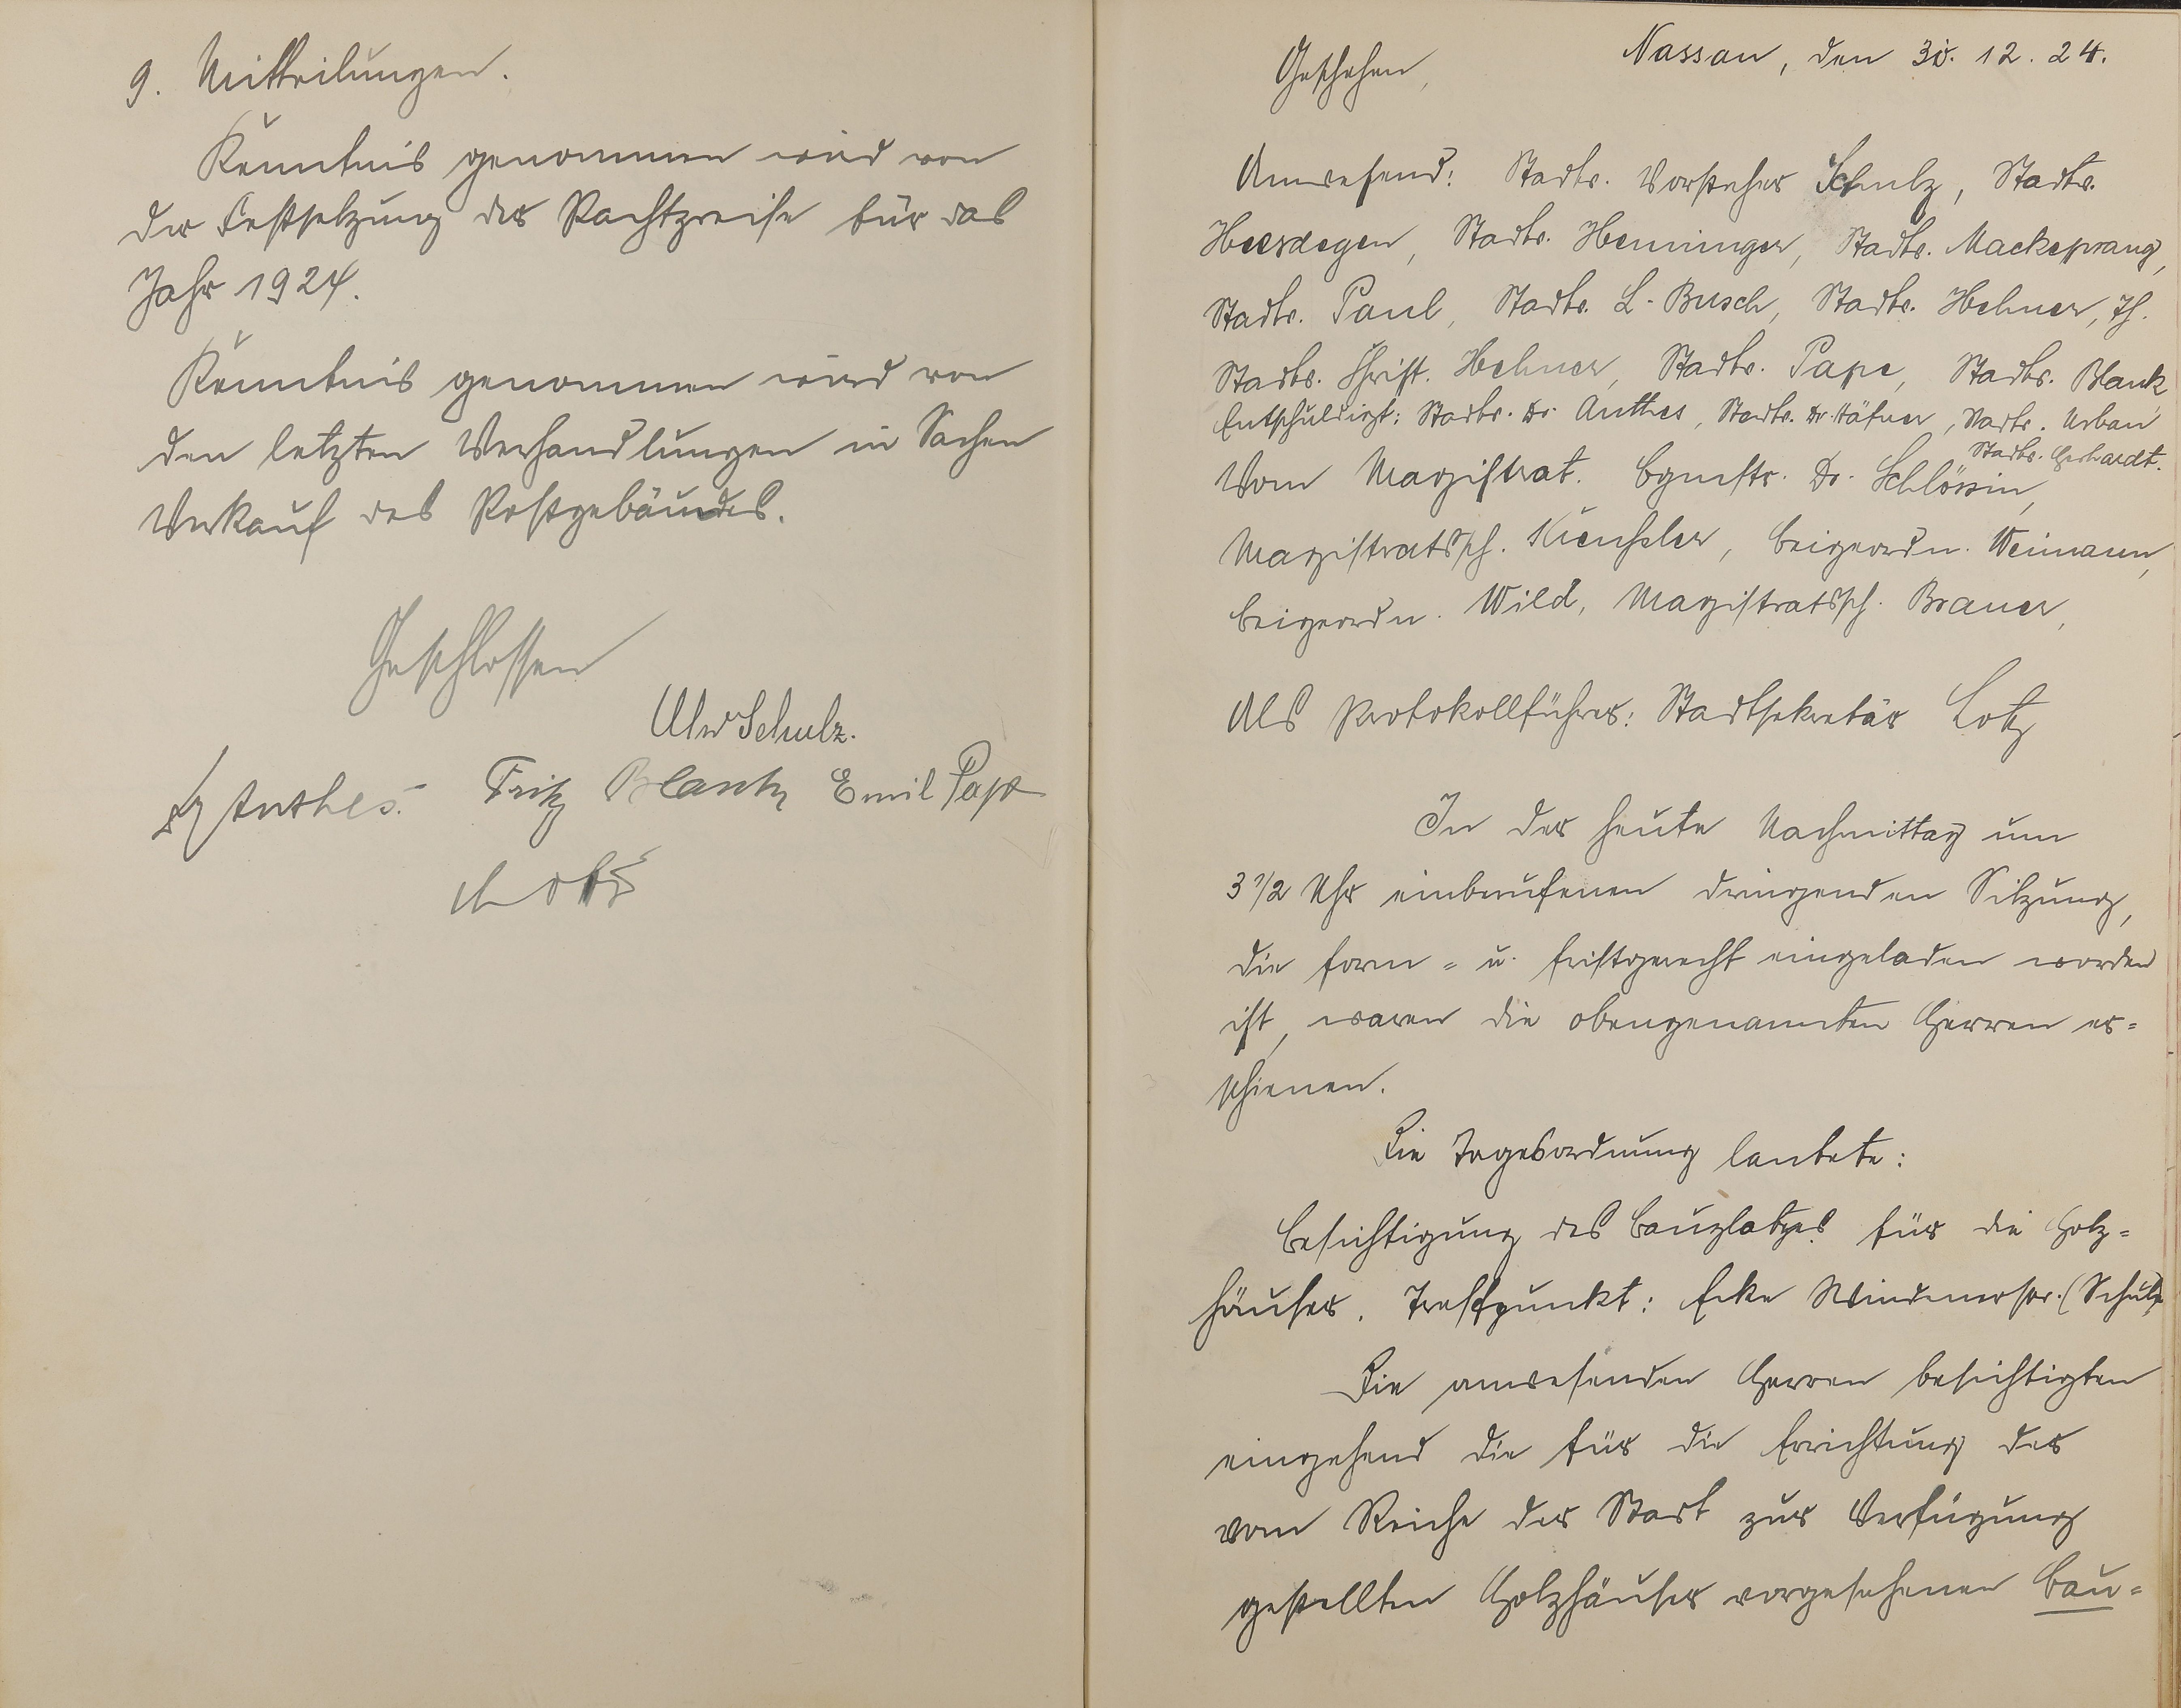 9. Mitteilungen.
Kenntnis genommen wird von
der Festsetzung der Pachtpreise für das
Jahr 1924.
Kenntnis genommen wird von
den letzten Verhandlungen in Sachen
Verkauf des Postgebäudes.
Geschlossen
Schulz.
Anthes. Fritz Blank Emil Pape
Lotz
Geschehen, Nassau, den 30. 12. 24.
Anwesend: Stadtv. Vorsteher Schulz, Stadtv.
Heerdegen, Stadtv. Henninger, Stadtv. Mackeprang,
Stadtv. Paul, Stadtv. L. Busch, Stadtv. Hehner, Th.
Stadtv. Schrift. Hehner, Stadtv. Pape, Stadtv. Blank
Entschuldigt: Stadtv. Dr. Anthes, Stadtv. Dr. Häfner, Stadtv. Urban
Stadtv. Gerhardt.
Vom Magistrat. Bgmstr. Dr. Schlössin,
Magistratssch. Kienzler, Beigeordn. Weimann,
Beigeordn. Wild, Magistratssch. Brauer,
Als Protokollführer: Stadtsekretär Lotz
In der heute Nachmittag um
3 1/2 Uhr einberufenen dringenden Sitzung,
die form- u. fristgerecht eingeladen worden
ist, waren die obengenannten Herren er-
schienen.
Die Tagesordnung lautete:
Besichtigung des Bauplatzes für die Holz-
häuser. Treffpunkt: Ecke Windenerstr. (Schulz)
Die anwesenden Herren besichtigten
eingehend die für die Errichtung der
vom Reiche der Stadt zur Verfügung
gestellten Holzhäuser vorgesehenen Bau-